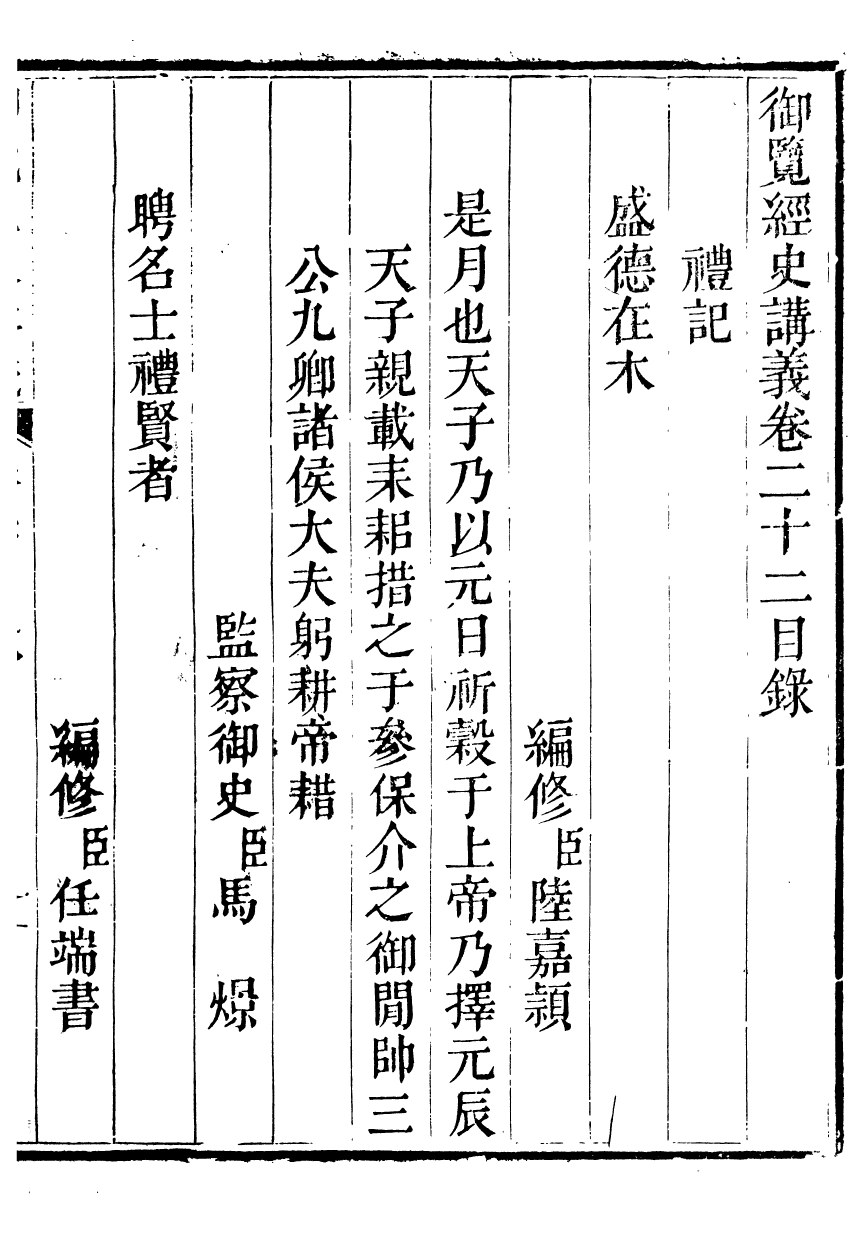 御覽經史講義卷二十二目錄
禮記
盛德在木
編修臣陸嘉頴
是月也天子乃以元日祈穀于上帝乃擇元辰
天子親載耒耜措之于參保介之御閒帥三
公九卿諸侯大夫躬耕帝耤
監察御史臣馬燝
聘名士禮賢者
編修臣任端書